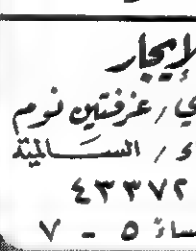 لإيجار
ي / غرفتين نوم
و / السالمية
٤٣٣٧٢
ساءً ٥ - ٧